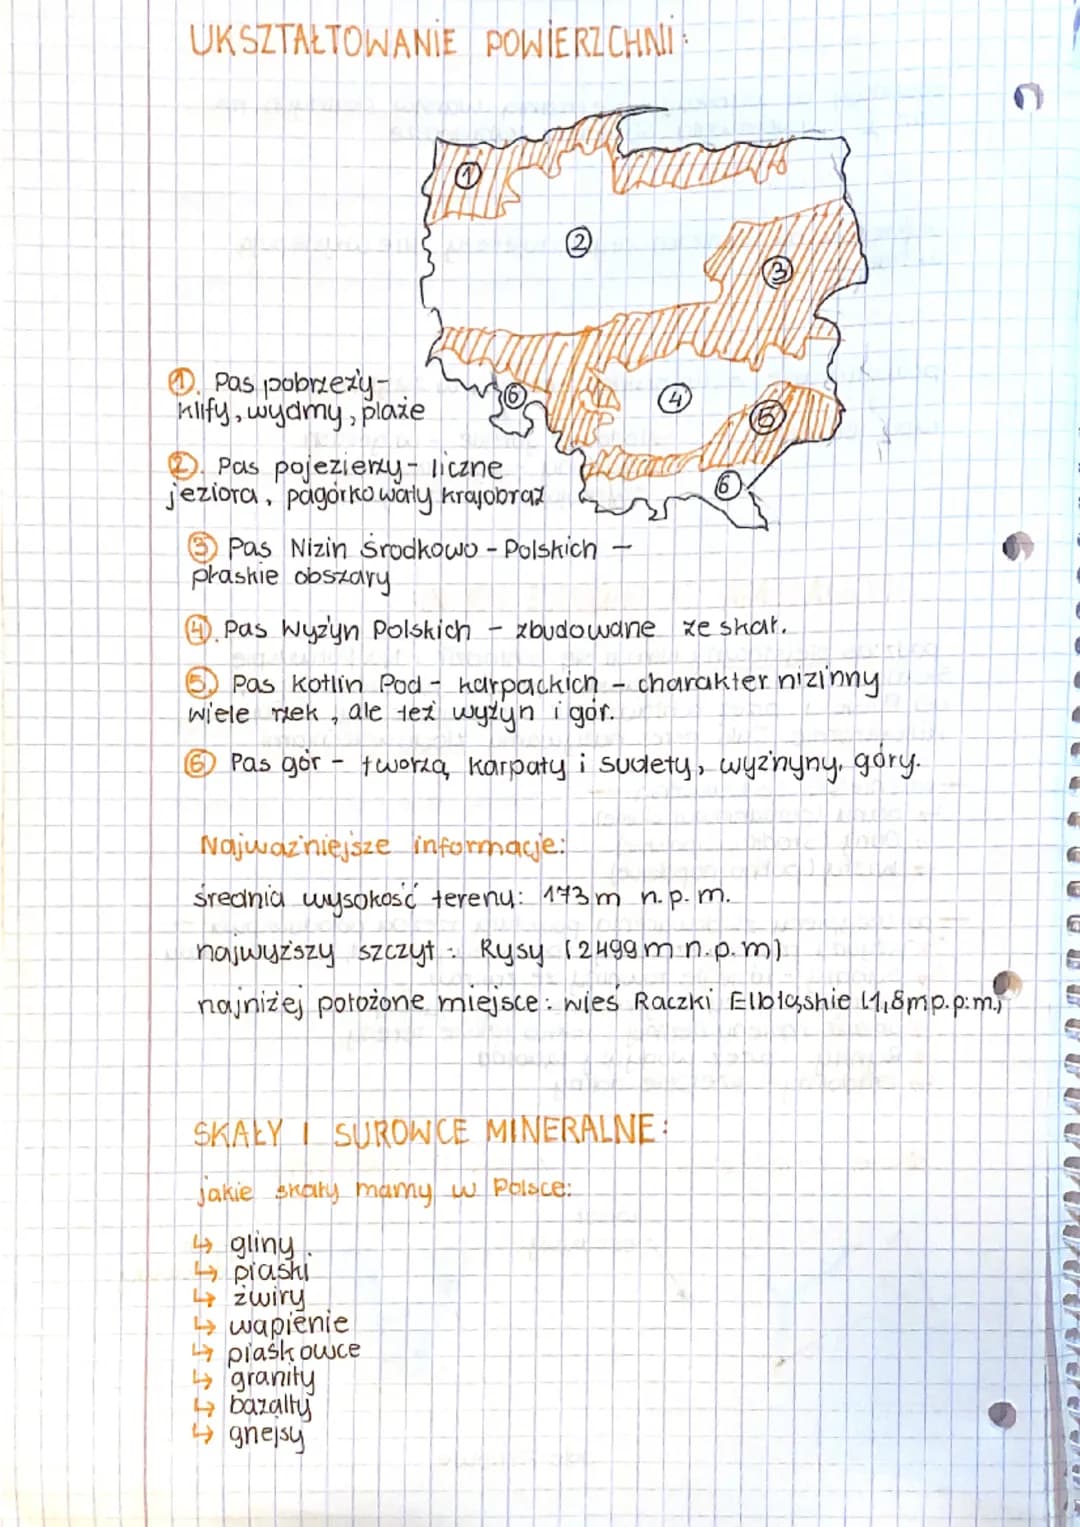 UKSZTAŁTOWANIE POWIERZCHNI:
1
2
3
4
5
6
6
1. Pas pobrzeży-
klify, wydmy, plaże
2. Pas pojezierzy - liczne
jeziora, pagórkowaty krajobraz
3 Pas Nizin Środkowo - Polskich -
płaskie obszary
4. Pas Wyżyn Polskich - zbudowane ze skał.
5. Pas Kotlin Pod - karpackich - charakter nizinny
wiele rzek, ale też wyżyn i gór.
6 Pas gór - tworzą Karpaty i Sudety, wyżnyny, góry.
Najważniejsze informacje:
średnia wysokość terenu: 173 m n.p.m.
najwyższy szczyt: Rysy (2499 m n.p.m)
najniżej położone miejsce: wieś Raczki Elbląskie (1,8m p.p.m.)
SKAŁY I SUROWCE MINERALNE:
jakie skały mamy w Polsce:
↳ gliny
↳ piaski
↳ żwiry
↳ wapienie
↳ piaskowce
↳ granity
↳ bazalty
↳ gnejsy